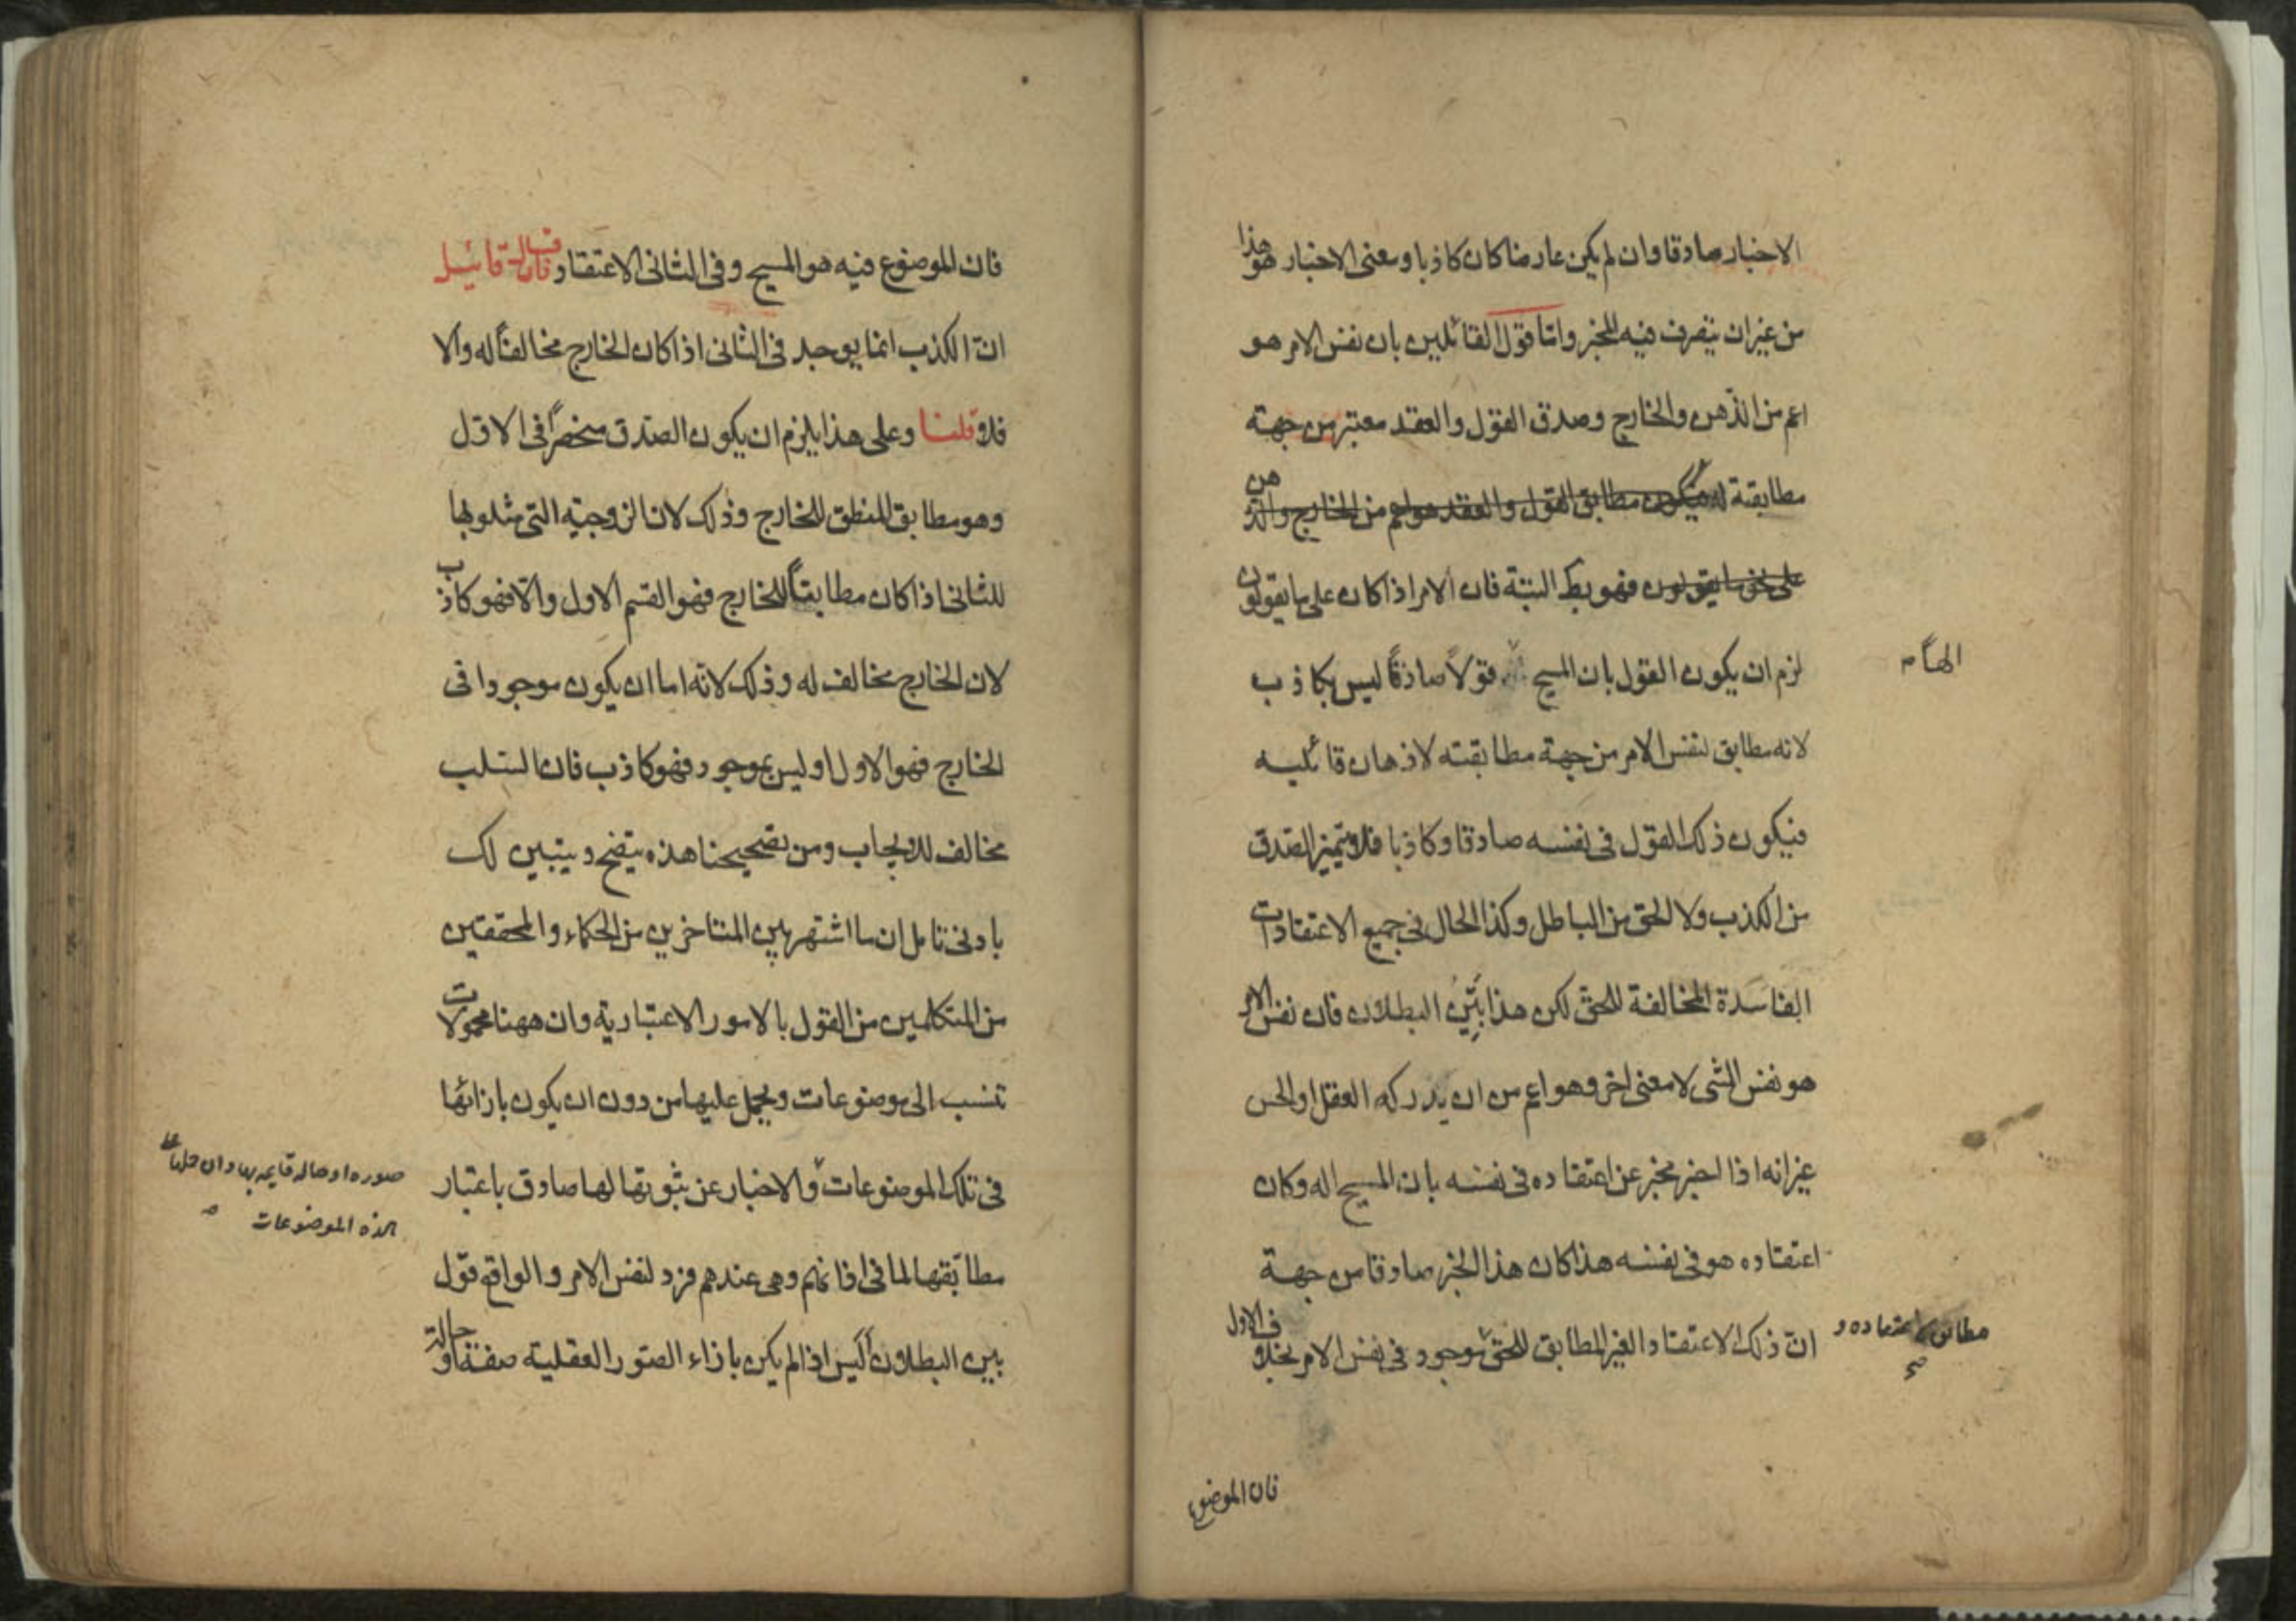 الاخبار صادقا وان لم يكن عارضا كان كاذبا ومعنى الاخبار هو هذا
من غيران يتصرف فيه المخبر واما قول القائلين بان نفس الامر هو
اعم من الذهن والخارج وصدق القول والعقد معتبر من جهة
مطابقة له فيكون مطابق القول والعقد هو اعم من الخارج والذهن
على نحو ما يقولون فهو بط البتة فان الامر اذا كان على ما يقولون
لزم ان يكون القول بان المسيح قولاً صادقاً ليس بكاذب
الهاً م
لانه مطابق لنفس الامر من جهة مطابقته لاذهان قائليه
فيكون ذلك القول فى نفسه صادقا وكاذبا فلا يتميز الصدق
من الكذب ولا الحق من الباطل وكذا الحال فى جميع الاعتقادات
الفاسدة المخالفة للحق لكن هذا بَيِّنُ البطلان فان نفس الامر
هو نفس الشى لا معنى اخر وهو اعم من ان يدركه العقل او الحس
غير انه اذا اخبر مخبر عن اعتقاده فى نفسه بان المسيح اله وكان
اعتقاده هو فى نفسه هذا كان هذا الخبر صادقا من جهة
ان ذلك الاعتقاد الغير المطابق للحق موجود فى نفس الامر بخلاف الاول
مطابق اعتقاده و
فان الموضوع
فان الموضوع فيه هو المسيح وفى الثانى الاعتقاد فان قال قائيل
انّ الكذب انما يوجد فى الثانى اذا كان الخارج مخالفاً له والا
فلا قلنا وعلى هذا يلزم ان يكون الصدق منحصراً فى الاول
وهو مطابق المنطق للخارج وذلك لان الزوجية التى مثلو بها
للثانى اذا كان مطابقاً للخارج فهو القسم الاول والا فهو كاذب
لان الخارج مخالف له وذلك لانه اما ان يكون موجودا فى
الخارج فهو الاول او ليس بموجود فهو كاذب فان السلب
مخالف للايجاب ومن تصحيحنا هذه يتضح ويتبين لك
بادنى تامل ان ما اشتهر بين المتاخرين من الحكماء والمحققين
من المتكلمين من القول بالامور الاعتبارية وان ههنا محمولات
تنسب الى موضوعات ويحمل عليها من دون ان يكون بازائها
فى تلك الموضوعات والاخبار عن ثبوتها لها صادق باعتبار
صوره او حاله قايمه بها وان حملها على
هذه الموضوعات
مطابقتها لما فى اذهانهم وهى عندهم فرد لنفس الامر والواقع قول
بين البطلان أليس اذا لم يكن بازاء الصور العقلية صفة او حالة